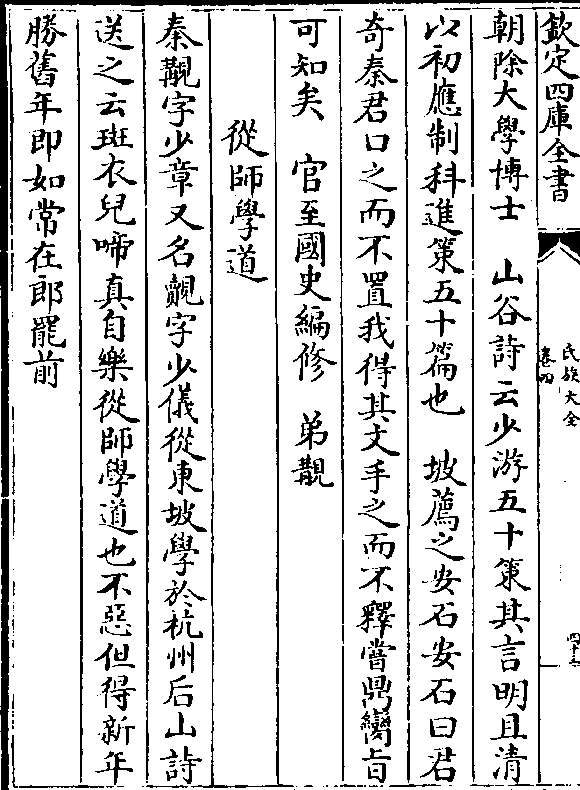 欽定四庫全書
氏族大全
卷四
四十三
朝除大學博士　山谷詩云少游五十策其言明且清
以初應制科進策五十篇也　坡薦之安石安石曰君
奇秦君口之而不置我得其文手之而不釋嘗鼎臠旨
可知矣　官至國史編修　弟覯
從師學道
秦覯字少章又名覿字少儀從東坡學於杭州后山詩
送之云斑衣兒啼真自樂從師學道也不惡但得新年
勝舊年即如常在郎罷前